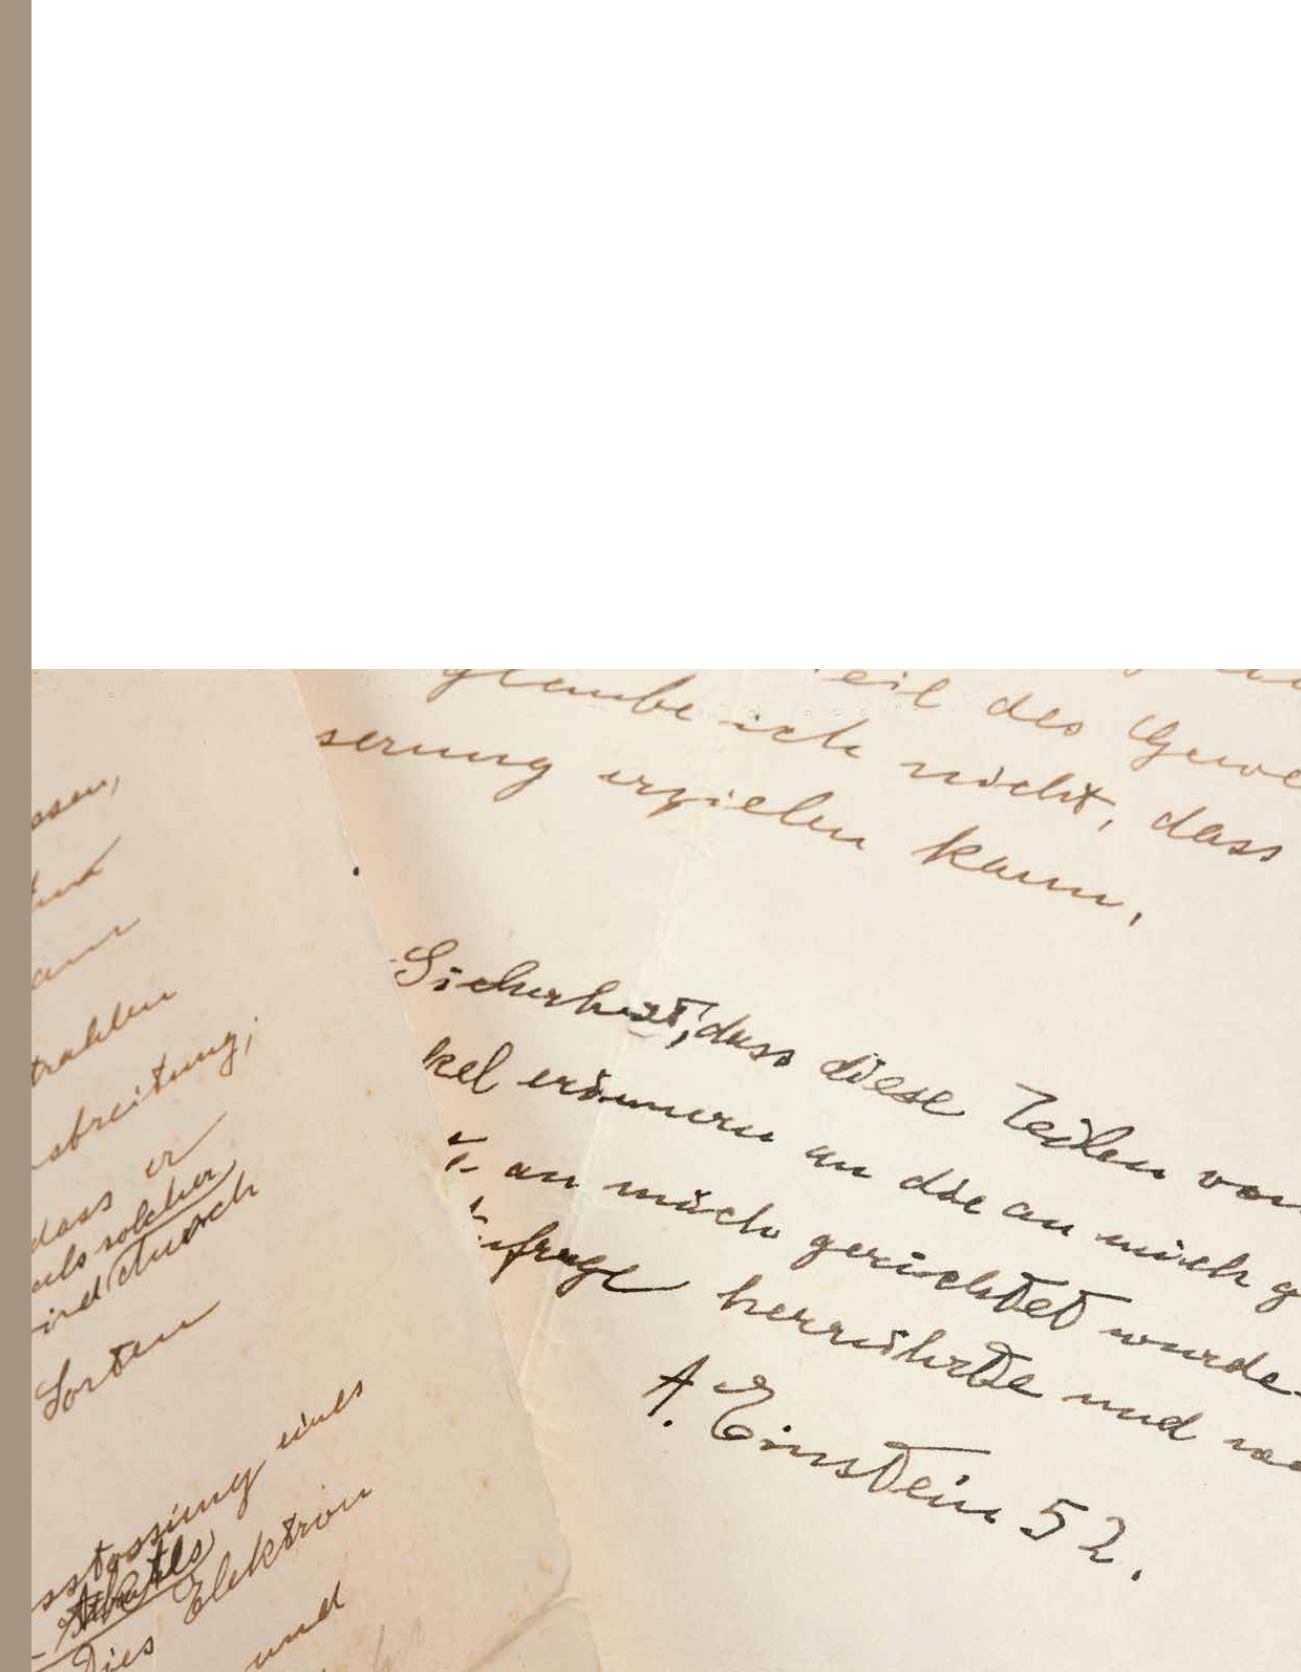 eil des Gewe
glaube ich nicht, dass
serung erzielen kann,
Sicherheit, dass diese Zeilen von
kel erinnern an die an mich g
an mich gerichtet wurde
frage herrührte und
A. Einstein 52.
assen,
trahlen
sbreitung;
dass er
als solcher
ird durch
Sorten
sstossung eines
Dies Elektron
und